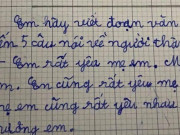 Em hãy viết đoạn văn
đến 5 câu nói về người thân
- Em rất yêu mẹ em. M
m. Em cũng rất yêu mẹ
mẹ em cũng rất yêu nhau
thương em.